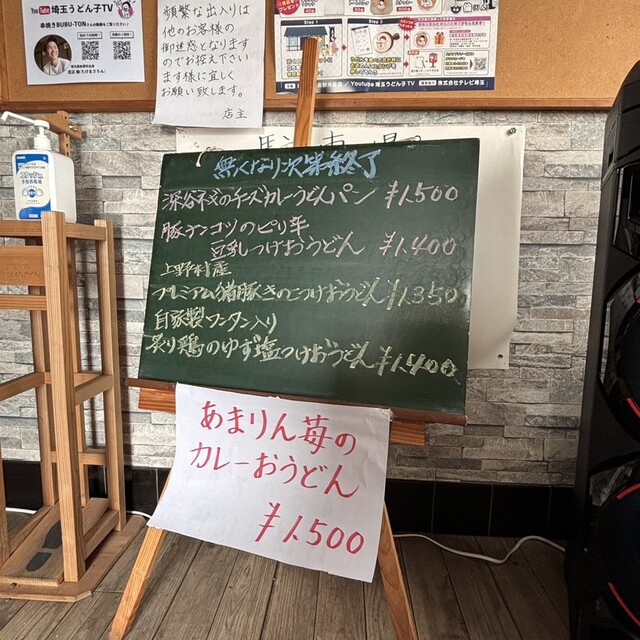 You Tube 埼玉うどん子TV
頻繁な出入りは
他のお客様の
御迷惑となります
のでお控え下さい
ます様に宜しく
お願い致します。
店主
Step 1
Youtube 埼玉うどん子TV
株式会社テレビ埼玉
無くなり次第終了
深谷ネギのチーズカレーうどんパン ¥1,500
豚ナンコツのピリ辛
豆乳つけおうどん ¥1,400
上野村産
プレミアム猪豚きのこつけおうどん ¥1,350
自家製ワンタン入り
炙り鶏のゆず塩つけおうどん ¥1,400
あまりん苺の
カレーおうどん
¥1,500